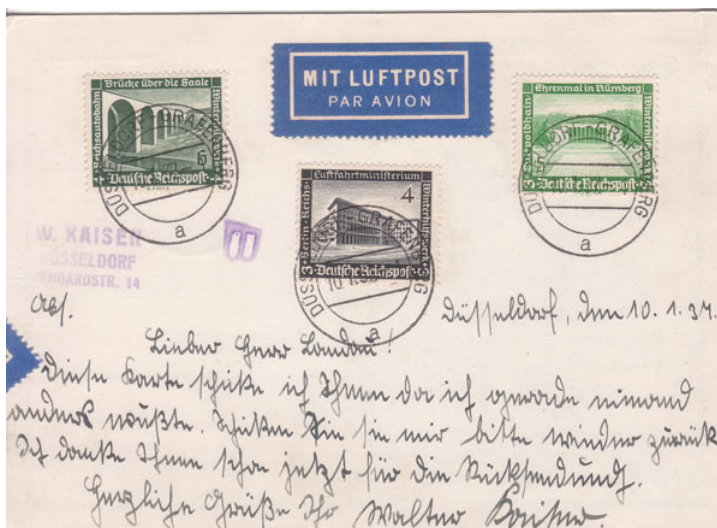 MIT LUFTPOST
PAR AVION
Brücke über die Saale
Reichsautobahn
Winterhilfswerk
6
Deutsche Reichspost
Ehrenmal in Nürnberg
Luitpoldhain
Winterhilfswerk
Deutsche Reichspost
Luftfahrtministerium
Berlin-Reichs-
Winterhilfswerk
4
3 Deutsche Reichspost 3
DÜSSELDORF-GRAFENBERG
a
DÜSSELDORF-GRAFENBERG
a
DÜSSELDORF-GRAFENBERG
a
W. KAISER
DÜSSELDORF
STR. 14
Abs.
Düsseldorf, den 10.1.37.
Lieber Herr
Diese Karte schike ich Ihnen da ich gerade niemand
anders wußte. Schiken Sie sie mir bitte wieder zurück
Ich danke Ihnen schon jetzt für die Rücksendung.
Herzliche Grüße Ihr Walter Kaiser